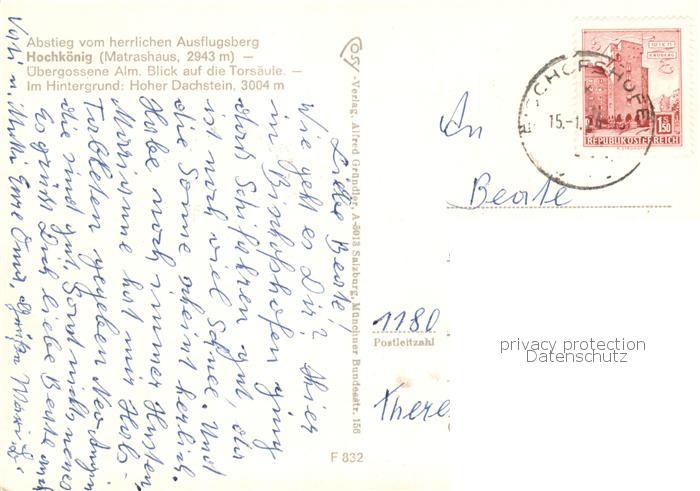 Abstieg vom herrlichen Ausflugsberg
Hochkönig (Matrashaus, 2943 m) —
Übergossene Alm. Blick auf die Torsäule. —
Im Hintergrund: Hoher Dachstein, 3004 m
Liebe Beate!
Wie geht es Dir? Hier
in Bischofshofen ging
das Schifahren gut, da
ist noch viel Schnee. Und
die Sonne scheint herlich.
Habe noch immer Husten
Marianne hat mir Hals-
Tabletten gegeben Neo-Angin
die sind gut. Sonst nichts neues
Es grüßt Dich liebe Beate und
Vati u. Mutti Eure Oma, Grüße
Cosy-Verlag, Alfred Gründler, A-5013 Salzburg, Münchner Bundesstr. 156
F 832
WIEN
ERDBERG
1.50
REPUBLIK ÖSTERREICH
BISCHOFSHOFEN
15.-1.
An
Beate
1180
Postleitzahl
There
privacy protection
Datenschutz